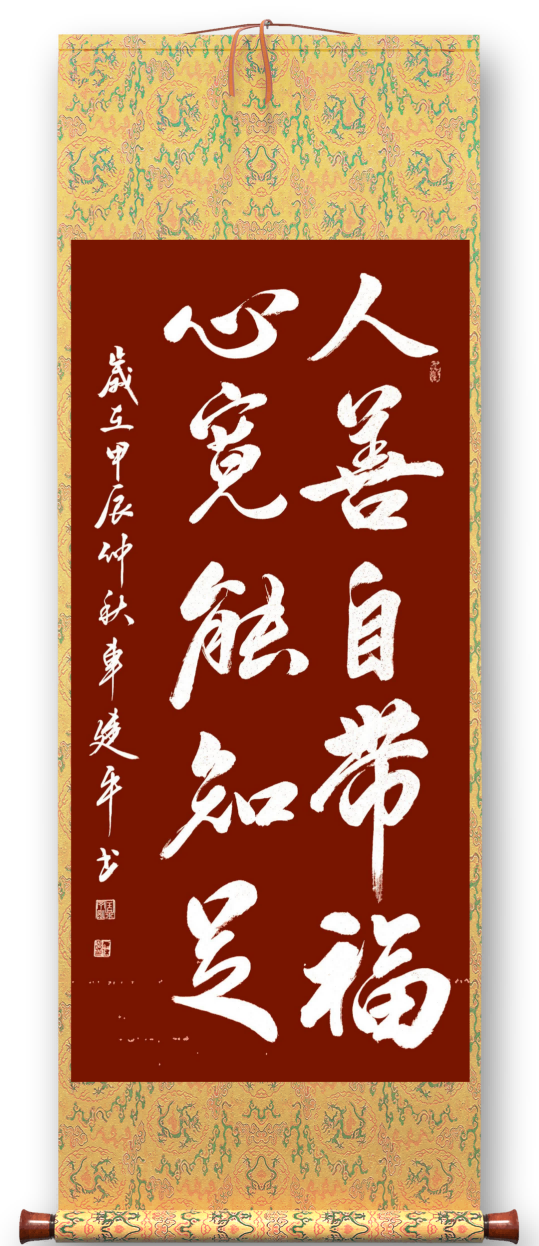 人善自带福
心寬能知足
歲在甲辰仲秋車建平书